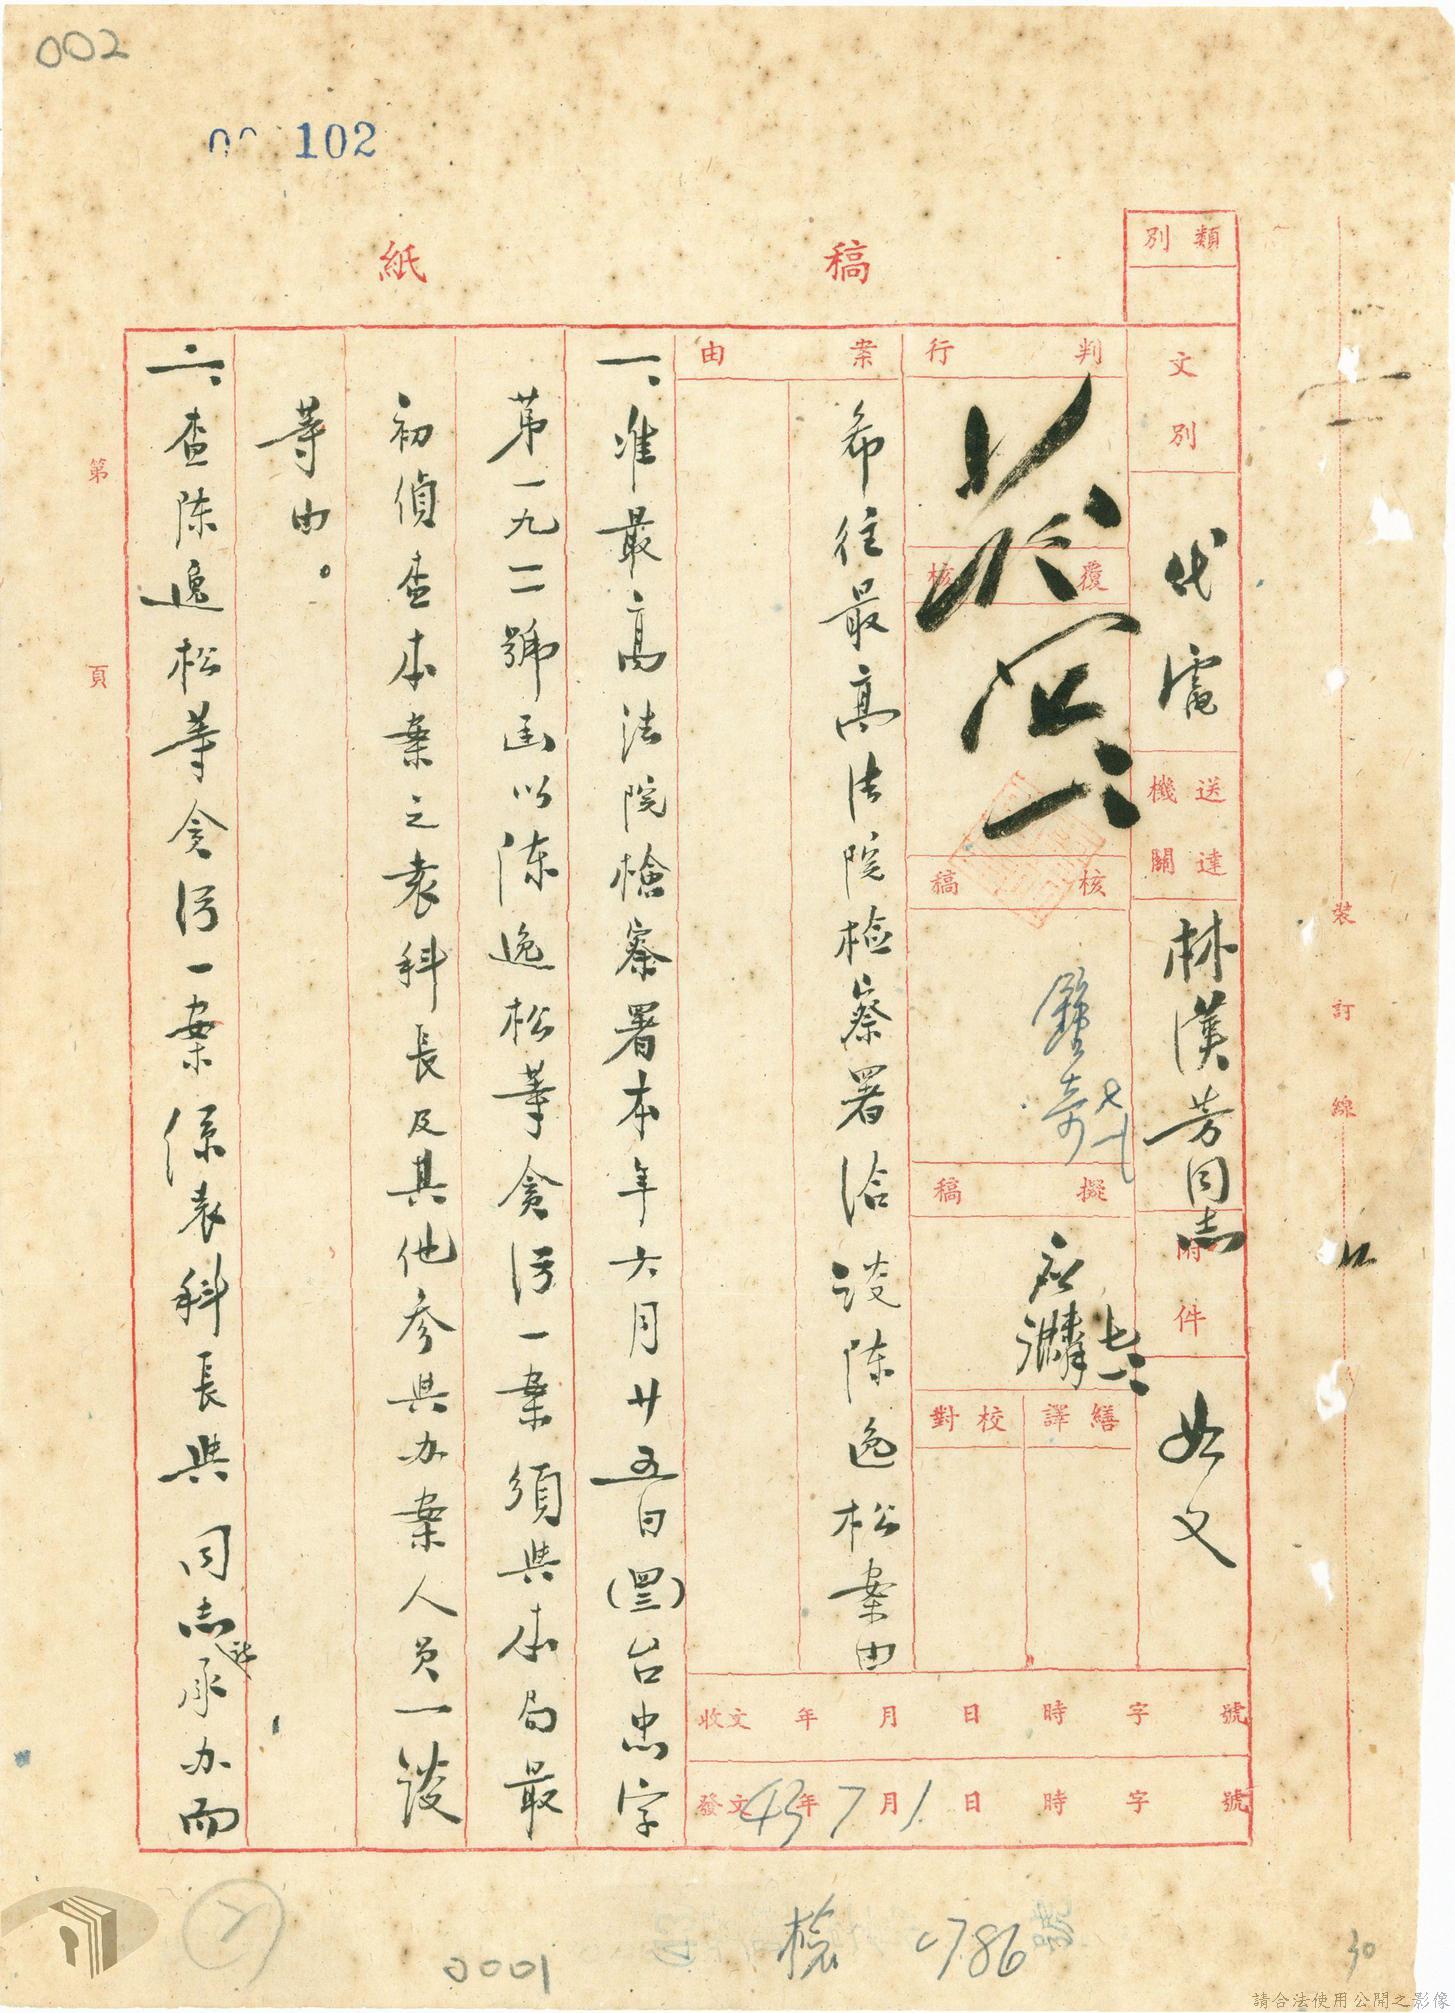 002
102
稿紙
類別
文別
代電
送達機關
林漢芳同志
附件
如文
判行
覆核
核稿
擬稿
繕譯
校對
案由
希往最高法院檢察署洽談陈逸松案由
收文 年 月 日 時 字 號
發文 43年7月1日 時 字 號
一、准最高法院檢察署本年六月廿五日(四三)台忠字
第一九二號函以陈逸松等貪污一案須與本局最
初偵查本案之袁科長及其他參與办案人員一談
等由。
二、查陈逸松等貪污一案係袁科長與同志承办而
第 頁
裝訂線
檔
號
0001
30
請合法使用公開之影像